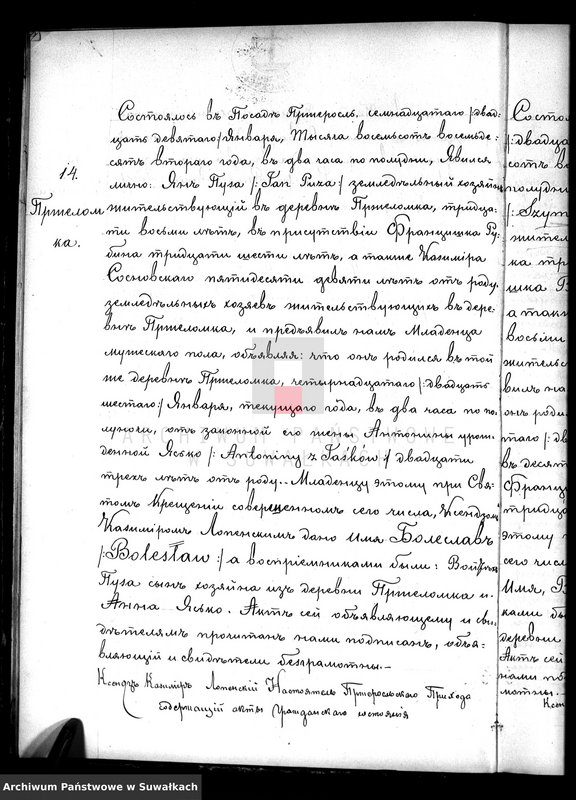 14.
Пршелом
ка.
Состоялось въ Посадѣ Пршеросль, семнадцатаго /:двад-
цать девятаго/ Января, Тысяча восемьсотъ восемьде-
сятъ втораго года, въ два часа по полудни, Явился
лично: Янъ Пуза /:Jan Puza:/ земледѣльный хозяинъ
жительствующій въ деревнѣ Пршеломка, тридца-
ти восьми лѣтъ, въ присутствіи Францишка Ру-
бина тридцати шести лѣтъ, а также Казиміра
Сосновскаго пятидесяти девяти лѣтъ отъ роду,
земледѣльныхъ хозяевъ жительствующихъ въ дере-
внѣ Пршеломка, и предъявилъ намъ Младенца
мужескаго пола, объявляя: что онъ родился въ той
же деревнѣ Пршеломка, четырнадцатаго /:двадцать
шестаго:/ Января, текущаго года, въ два часа по по-
луночи, отъ законной его жены Антонины урож-
денной Ясько /:Antoniny z Jaśków:/ двадцати
трехъ лѣтъ отъ роду.. Младенцу этому при Свя-
томъ Крещеніи совершенномъ сего числа, Ксендзомъ
Казиміромъ Лопенскимъ дано имя Болеславъ
/:Bolesław:/ а воспріемниками были: Войтѣхъ
Пуза сынъ хозяина изъ деревни Пршеломка и
Анна Ясько. Актъ сей объявляющему и сви-
дѣтелямъ прочитанъ нами подписанъ, объя-
вляющій и свидѣтели безграмотны.-
Ксендзъ Казиміръ Лопенскій Настоятель Пршеросльскаго Прихода
содержащій акты гражданскаго состоянія
Состо
/:двадца
сотъ во
полудни
/:Szym
жител
ка тр
шка
а так
восьми
жительс
вилъ на
онъ роди
таго /:д
въ десят
Франц
тридца
этому п
сего чис
Имя,
ками бы
деревни
Актъ сей
нами по
мотны.-
Ксен
ARCHIWUM PAŃSTWOWE
W SUWAŁKACH
Archiwum Państwowe w Suwałkach